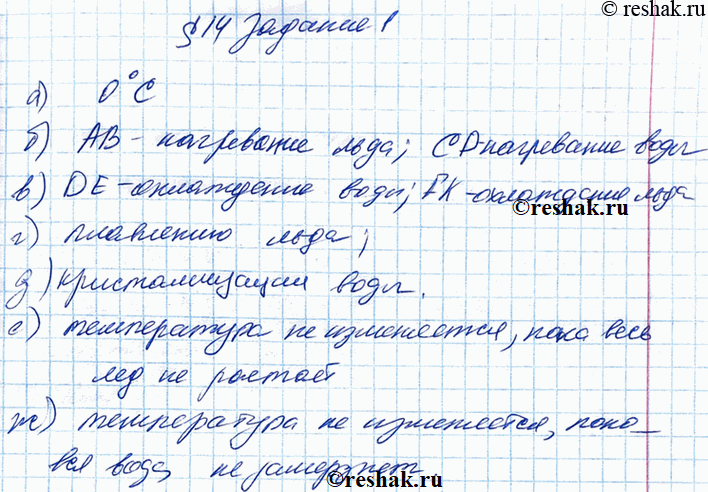 §14 Задание 1
а) 0°С
б) АВ - нагревание льда; СD-нагревание воды
в) DE - охлаждение воды; FK - охлаждение льда
©reshak.ru
г) плавлению льда;
д) кристализации воды.
е) температура не изменяется, пока весь
лед не ростает
ж) температура не изменяется, пока
вся вода не замерзнет
©reshak.ru